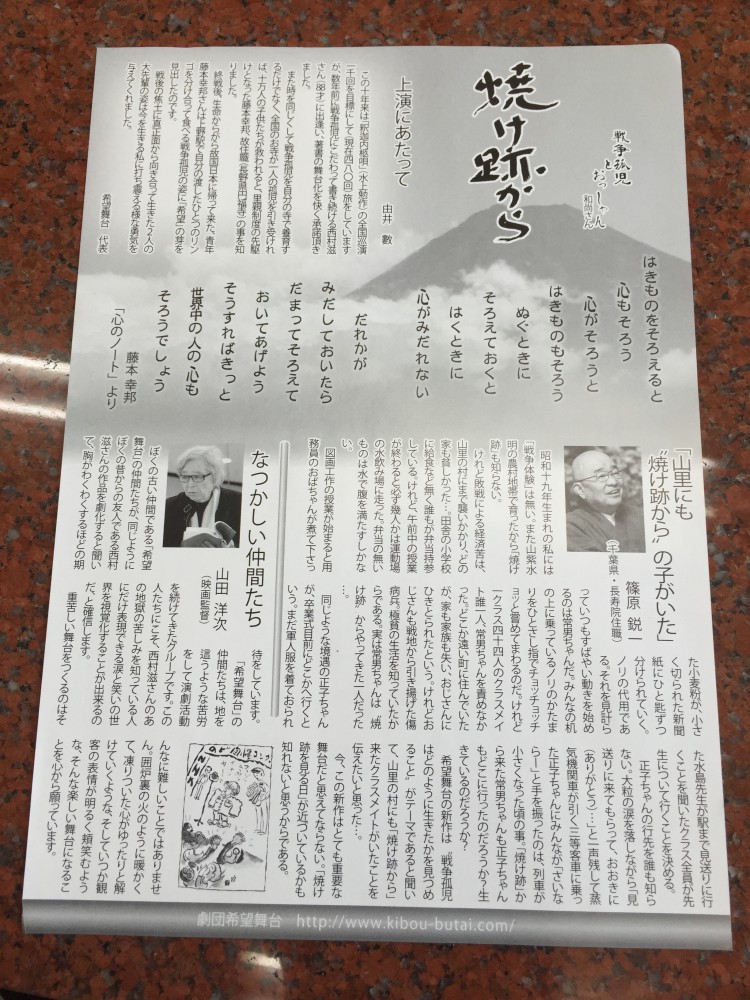 焼け跡から
戦争孤児
とおっしゃん
和尚さん
上演にあたって
由井 數
この十年来は「釈迦内柩唄」「水上勉作」の全国巡演
一千回を目標にして(現在四八〇回)旅をしています
が、数年前に戦争孤児にこだわって書き続ける西村滋
さん(88才)に出逢い、著書の舞台化を快く承諾頂き
ました。
また時を同じくして戦争孤児を自分の寺で養育す
るだけでなく、全国のお寺が一人の孤児を引き受けれ
ば、十万人の子供たちが救われると、里親制度の先駆
けとなった藤本幸邦、故住職(長野県円福寺)の事を知
りました。
終戦後、生命からがら故国日本に帰って来た、青年
藤本幸邦さんは上野駅で自分の渡したひとつのリン
ゴを分け合って食べる戦争孤児の姿に「希望」の芽を
見出したのです。
戦後の焦土に真正面から向き合って生きた2人の
大先輩の姿は今を生きる私に打ち震える様な勇気を
与えてくれました。
希望舞台 代表
はきものをそろえると
心もそろう
心がそろうと
はきものもそろう
ぬぐときに
そろえておくと
はくときに
心がみだれない
だれかが
みだしておいたら
だまってそろえて
おいてあげよう
そうすればきっと
世界中の人の心も
そろうでしょう
藤本 幸邦
「心のノート」より
「山里にも
“焼け跡から”の子がいた」
篠原 鋭一
(千葉県・長寿院住職)
昭和十九年生まれの私には
「戦争体験」は無い。また山紫水
明の農村地帯で育ったから「焼け
跡」も知らない。
けれど敗戦による経済苦は、
山里の村にまで襲いかかり、どの
家も貧しかった…。田舎の小学校
に給食など無く誰もが弁当持参
している。けれど、午前中の授業
が終わると必ず幾人かは運動場
の水飲み場に走った。弁当の無い
ものは水で腹を満たすしかな
い。
図画工作の授業が始まると用
務員のおばちゃんが煮て下さっ
た小麦粉が、小さ
く切られた新聞
紙にひと匙ずつ
分けられていく。
ノリの代用であ
る。それを見計ら
っていつもすばやい動きを始め
るのは常男ちゃんだ。みんなの机
の上に乗っているノリのかたま
りをひとさし指でチョッチョッチ
ョリと嘗めてまわるのだ。けれど
一クラス四十四人のクラスメイ
ト誰一人、常男ちゃんを責めなか
った。どこか遠い町に住んでいた
が、家も家族も失い、おじさんに
ひきとられたという。けれどお
じさんも戦地から引き揚げた傷
病兵。極貧の生活を知っていたか
らである。実は常男ちゃんは“焼
け跡”からやってきた一人だった
…。
同じような境遇の正子ちゃん
が、卒業式目前にどこかへ行くと
いう。まだ軍人服を着ておられ
た水島先生が駅まで見送りに行
くことを聞いたクラス全員が先
生について行くことを決める。
正子ちゃんの行先を誰も知ら
ない。大粒の涙を落しながら「見
送りに来てもらって、おおきに
(ありがとう)…」と一声残して蒸
気機関車が引く三等客車に乗っ
た正子ちゃんにみんなが「さいな
らー」と手を振ったのは、列車が
小さくなった頃の事。“焼け跡”か
ら来た常男ちゃんも正子ちゃん
もどこに行ったのだろうか?生
きているのだろうか?
希望舞台の新作は“戦争孤児
はどのように生きたかを見つめ
ること”がテーマであると聞い
て、山里の村にも“焼け跡から”
来たクラスメイトがいたことを
伝えたいと思った…。
今、この新作はとても重要な
舞台だと思えてならない。「焼け
跡を見る日」が近づいているかも
知れないと思うからである。
なつかしい仲間たち
山田 洋次
(映画監督)
ぼくの古い仲間である「希望
舞台」の仲間たちが、同じように
ぼくの昔からの友人である西村
滋さんの作品を劇化すると聞い
て、胸がわくわくするほどの期
待をしています。
「希望舞台」の
仲間たちは、地を
這うような苦労
をして演劇活動
を続けてきたグループです。この
人たちにこそ、西村滋さんのあ
の地獄の苦しみを知っている人
にだけ表現できる涙と笑いの世
界を視覚化することが出来るの
だ、と確信します。
重苦しい舞台をつくるのはそ
んなに難しいことではありませ
ん。囲炉裏の火のように暖かく
て、凍りついた心がゆったりと解
けていくような、そしていつか観
客の表情が明るく頬笑むよう
な、そんな楽しい舞台になるこ
とを心から願っています。
劇団希望舞台 http://www.kibou-butai.com/